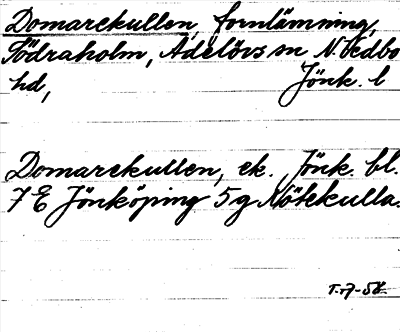 Domarekullen, fornlämning,
Södraholm, Adelövs sn N. Vedbo
hd, Jönk. l
Domarekullen, ek. Jönk. bl.
7 E Jönköping 5 g Nötekulla.